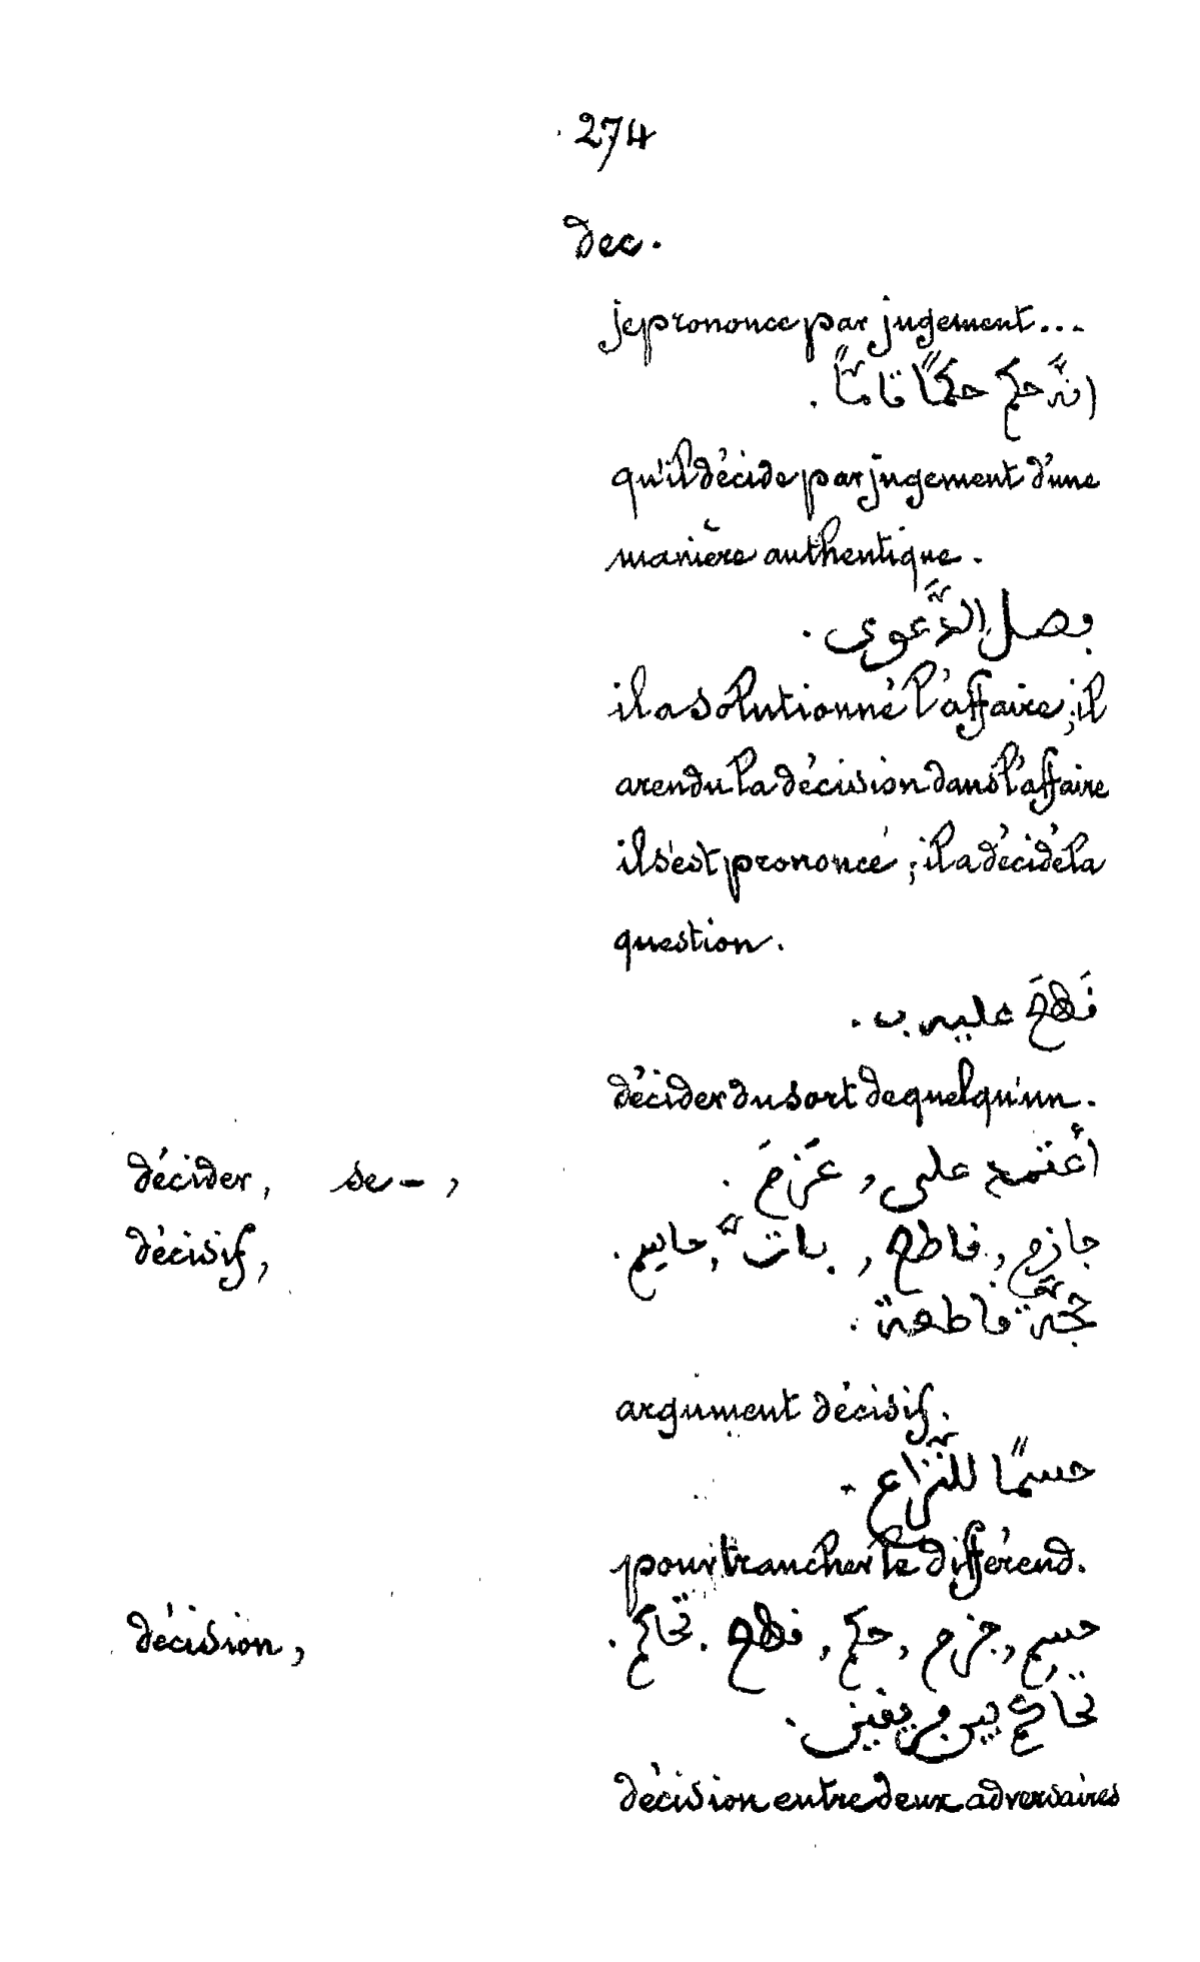 274
dec.
je prononce par jugement...
انّه حكم حكمًا تامًّا .
qu'il décide par jugement d'une
manière authentique.
ڢصل الدَّعوى .
il a solutionné l'affaire; il
a rendu la décision dans l'affaire
il s'est prononcé; il a décidé la
question.
عليه ب .
décider du sort de quelqu'un.
décider, se –, أعتمد على, عَزَمَ .
décisif, جازم, فاطع, باتّ, حاسم .
حجّة فاطعة .
argument décisif.
حسمًا للنّزاع .
pour trancher le différend.
décision, حسم, جزم, حكم, . تحاكم .
تحاكم بين ڢريفين .
décision entre deux adversaires